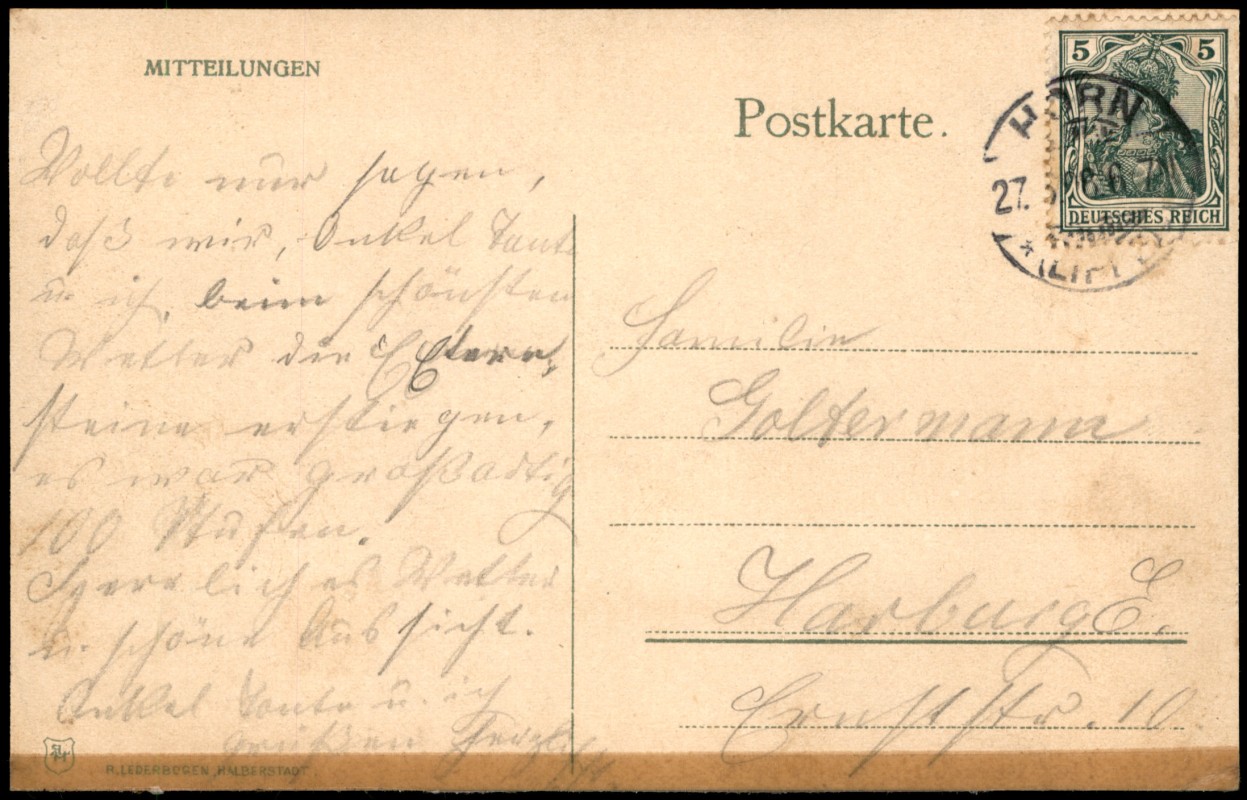 MITTEILUNGEN
Postkarte.
5 5
DEUTSCHES REICH
HORN
27. 6 7N
* (LIPPE)
Wollte nur sagen,
daß wir, Onkel Tante
u. ich, beim schönsten
Wetter die Extern,
steine erstiegen,
es war großartig
100 Stufen.
Herrliches Wetter
u. schöne Aussicht.
Onkel Tante u. ich
grüßen herzlich
Familie
Goltermann
Harburg E.
Ernststr. 10
R. LEDERBOGEN, HALBERSTADT